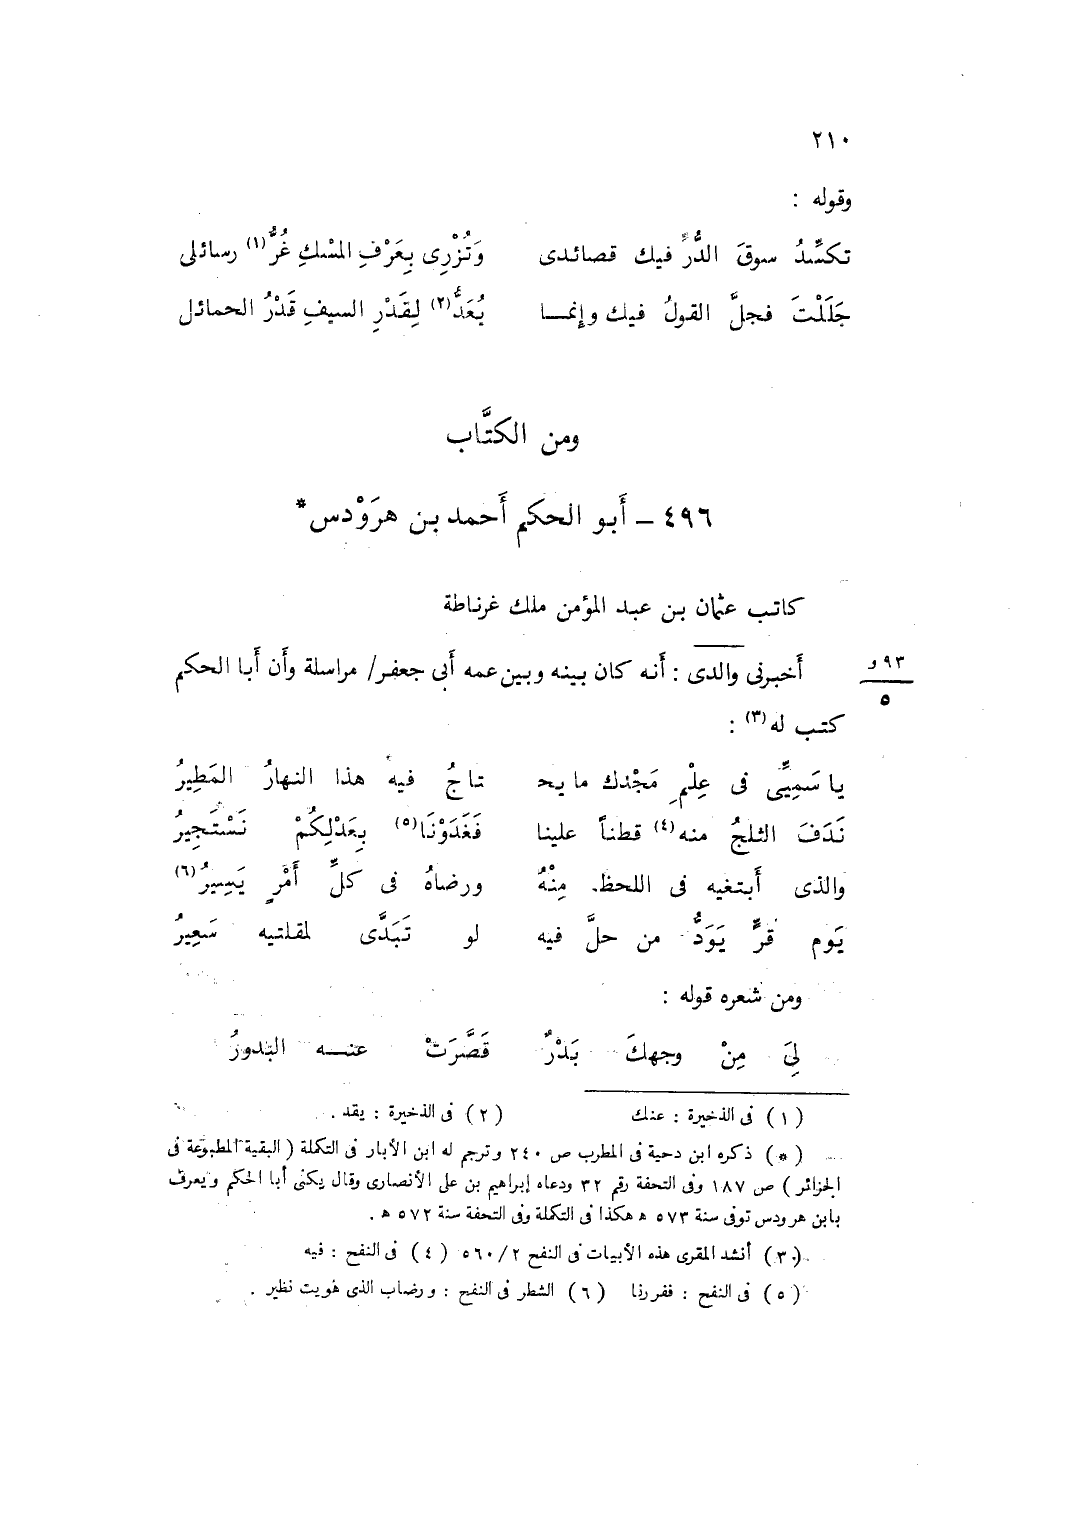 ٢١٠
وقوله :
تكسِّدُ سوقَ الدُّرِّ فيك قصائدى وَتُزْرِى بِعَرْفِ المسْكِ غُرُّ (١) رسائلى
جَلَلْتَ فجلَّ القولُ فيك وإنمـــا يُعَدُّ (٢) لِقَدْرِ السيفِ قَدْرُ الحمائل
ومن الكتَّاب
٤٩٦ – أَبو الحكم أَحمد بن هرَوْدس*
كاتب عثمان بن عبد المؤمن ملك غرناطة
أَخبرنى والدى : أَنه كان بينه وبين عمه أَبى جعفر/ مراسلة وأَن أَبا الحكم
٩٣ و
٥
كتب له (٣) :
يا سَمِيِّى فى عِلْمِ مَجْدك ما يحـ تاجُ فيه هذا النهارُ المَطِيرُ
نَدَفَ الثلجُ منه (٤) قطناً علينا فَغَدَوْنَا (٥) بِعَدْلِكُمْ نَسْتَجِيرُ
والذى أَبتغيه فى اللحظ مِنْهُ ورضاهُ فى كلِّ أَمْرٍ يَسِيرُ (٦)
يَوم قرٍّ يَوَدُّ من حلَّ فيه لو تَبَدَّى لمقلتيه سَعِيرُ
ومن شعره قوله :
لِىَ مِنْ وجهكَ بَدْرٌ قَصَّرَتْ عنـــه البدورُ
(١) فى الذخيرة : عنك (٢) فى الذخيرة : يقد .
(*) ذكره ابن دحية فى المطرب ص ٢٤٠ وترجم له ابن الأبار فى التكملة ( البقية المطبوعة فى
الجزائر ) ص ١٨٧ وفى التحفة رقم ٣٢ ودعاه إبراهيم بن على الأنصارى وقال يكنى أبا الحكم ويعرف
بابن هرودس توفى سنة ٥٧٣ ه هكذا فى التكملة وفى التحفة سنة ٥٧٢ ه .
(٣) أنشد المقرى هذه الأبيات فى النفح ٢/ ٥٦٠ (٤) فى النفح : فيه
(٥) فى النفح : ففررنا (٦) الشطر فى النفح : ورضاب الذى هويت نظير .